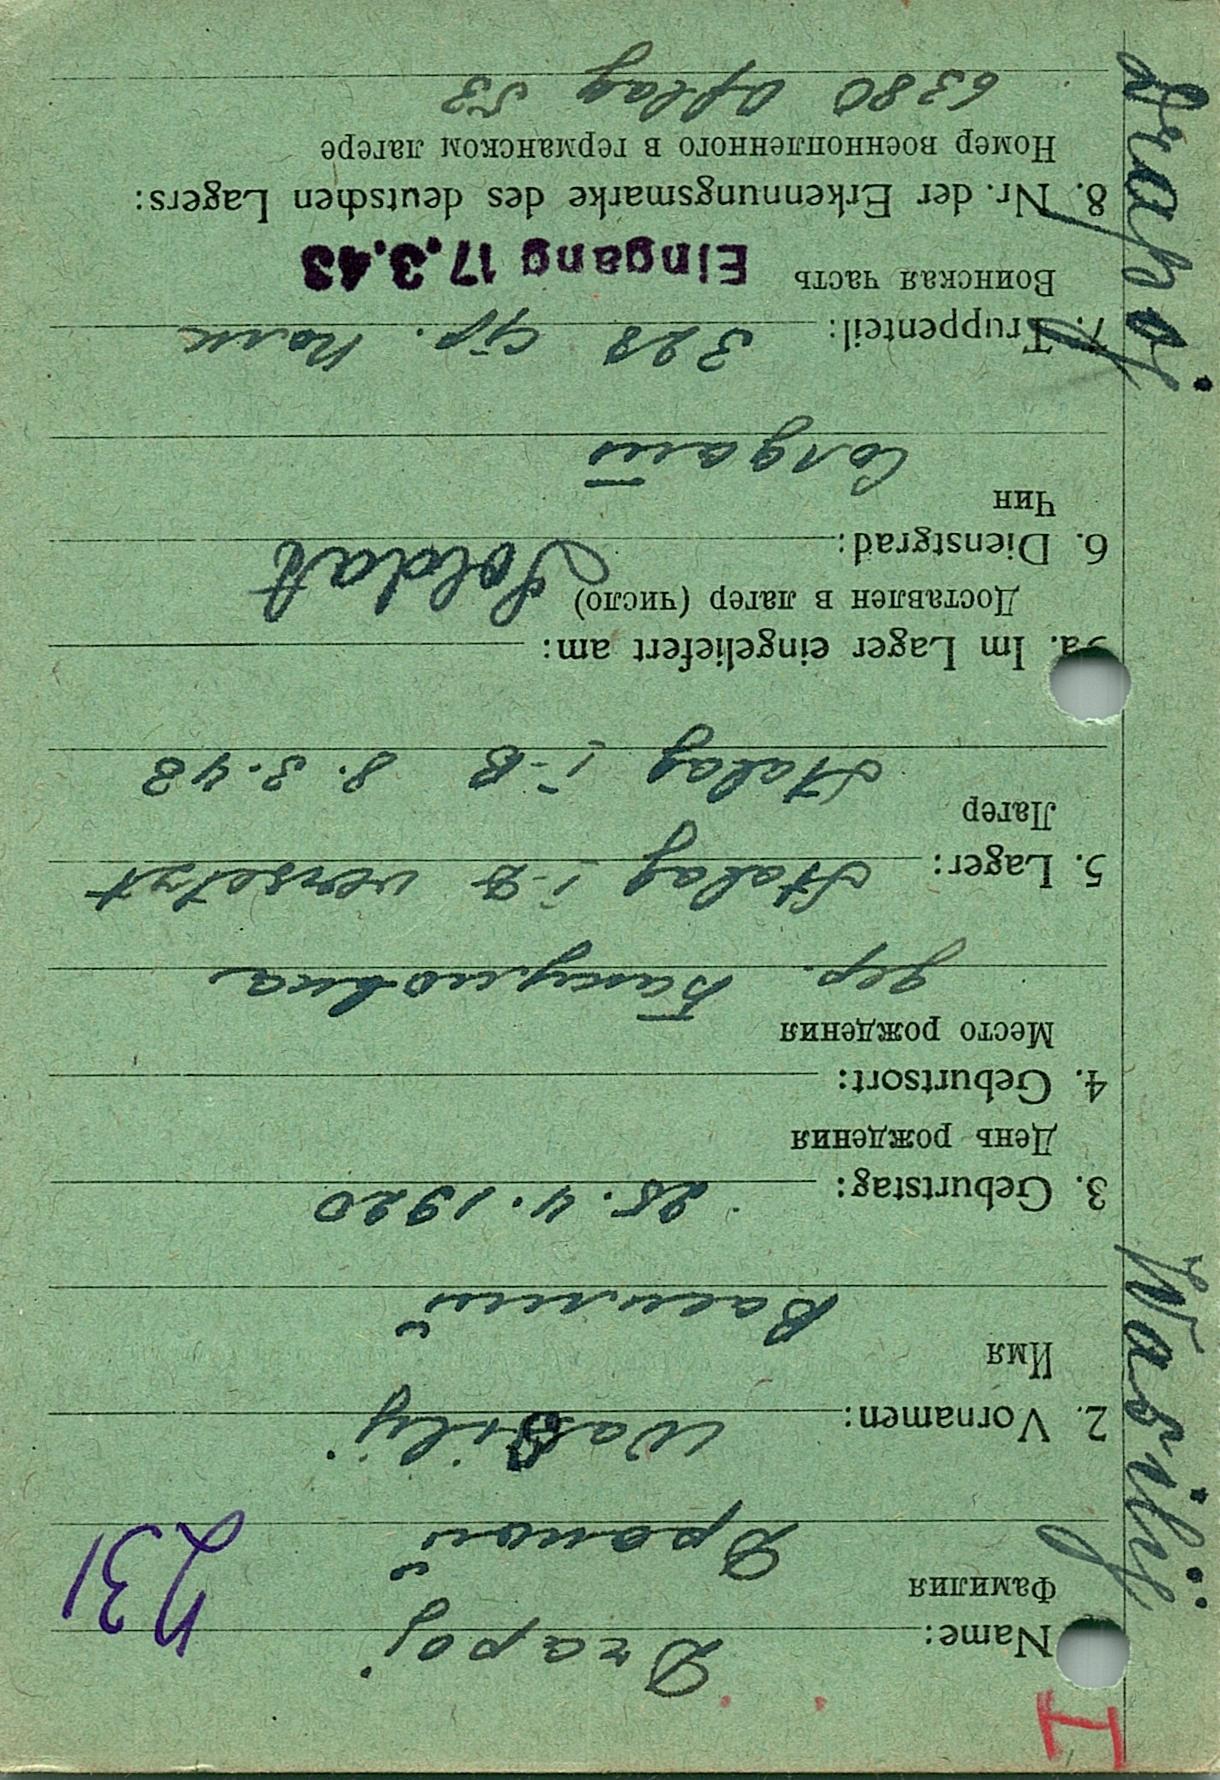 I
Name: Drapoj
Фамилия
Драпой
231
2. Vornamen: Wasilij
Имя
Василий
3. Geburtstag: 25. 4. 1920
День рождения
4. Geburtsort:
Место рождения
дер.
5. Lager: Stalag versetzt
Лагер
Stalag I-B 8. 3. 43
5a. Im Lager eingeliefert am:
Доставлен в лагер (число)
6. Dienstgrad: Soldat
Чин
Солдат
7. Truppenteil: 328 стр. полк
Воинская часть Eingang 17.3.43
8. Nr. der Erkennungsmarke des deutschen Lagers:
Номер военнопленного в германском лагере
6380 Oflag 53
Wasilij